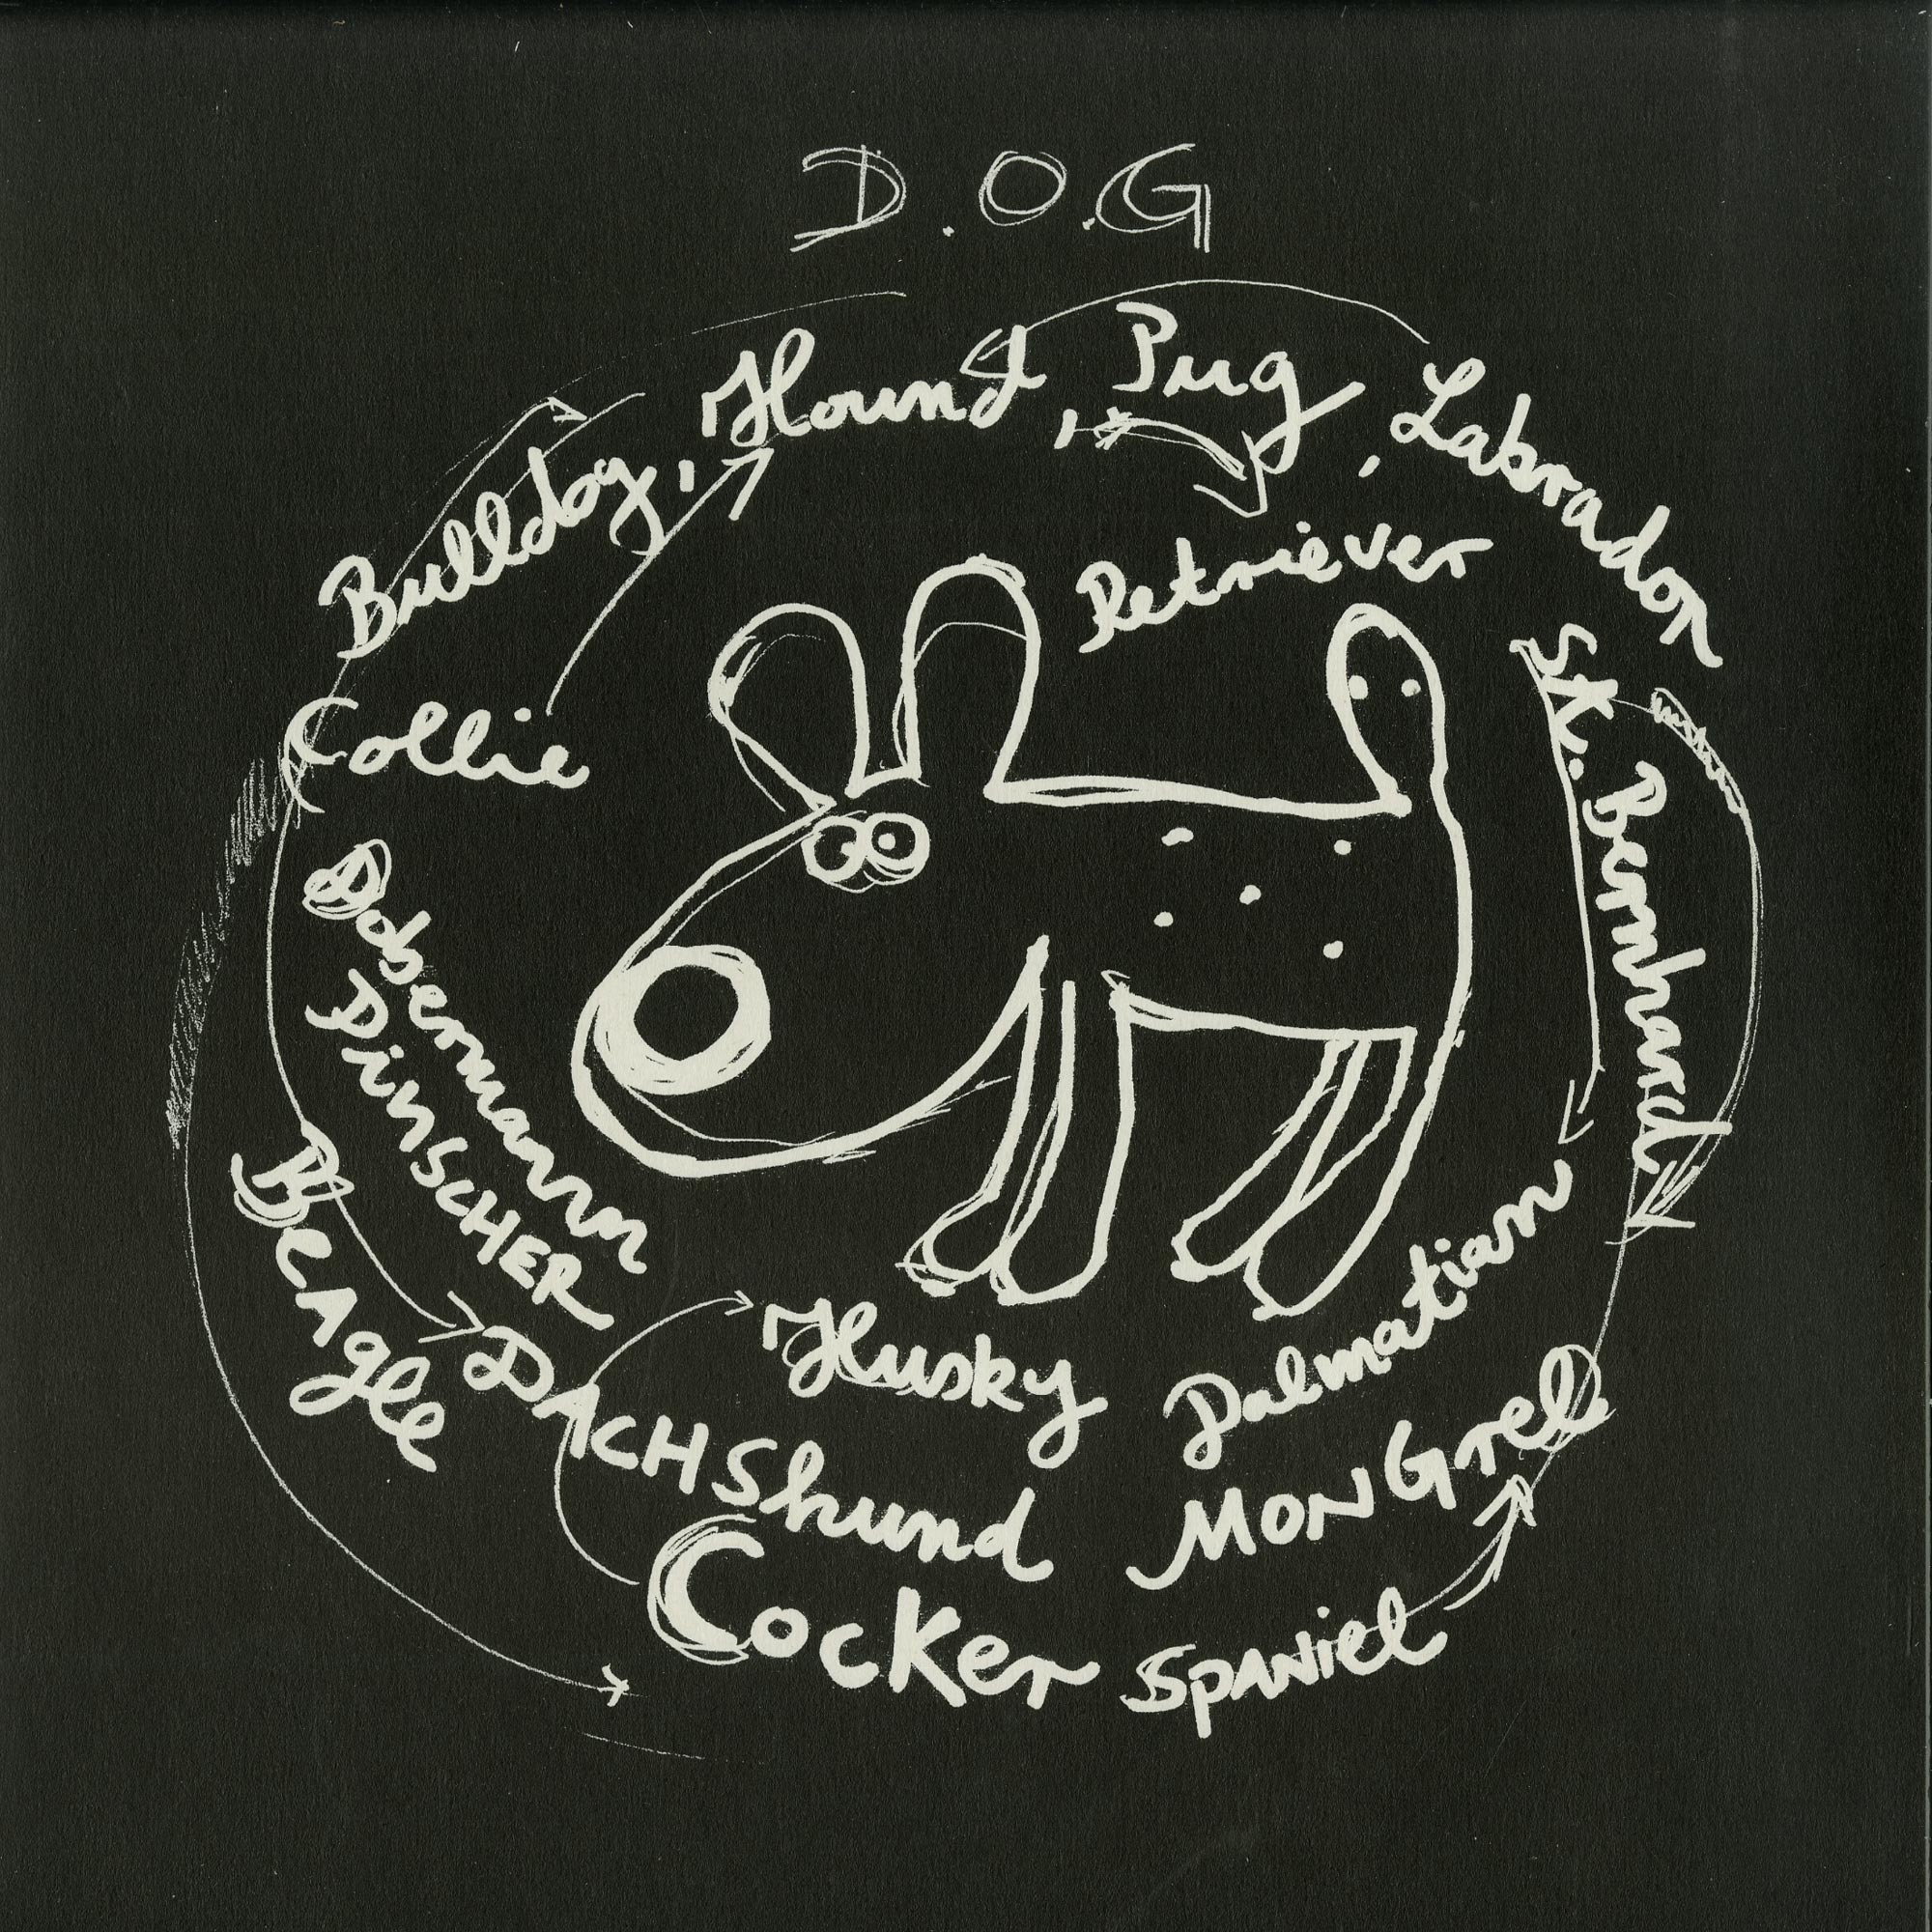 D.O.G
Hound, Pug,
Bulldog,
Labrador
Retriever
Collie
St. Bernhard
Dobermann
PinSCHER
BeAgle
Husky
Dalmatian
DACHShund
MONGrel
Cocker SPANiel